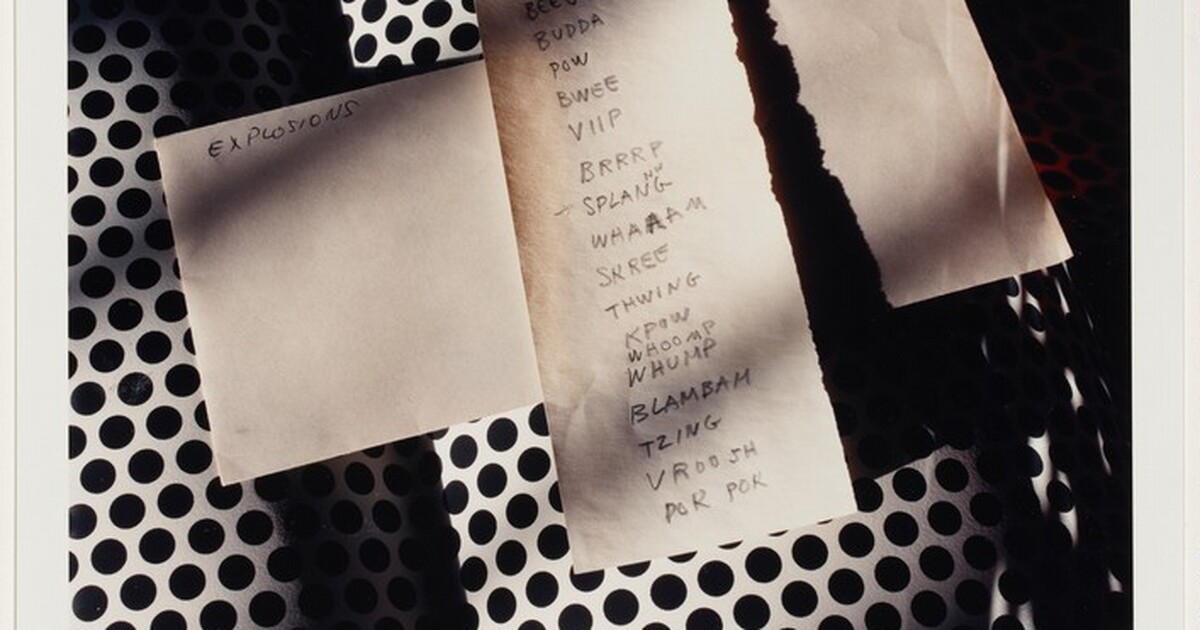 EXPLOSIONS
BUDDA
POW
BWEE
VIIP
BRRRP
SPLANG
WHAAAM
SKREE
THWING
KPOW
WHOOMP
WHUMP
BLAMBAM
TZING
VROOSH
POK POK